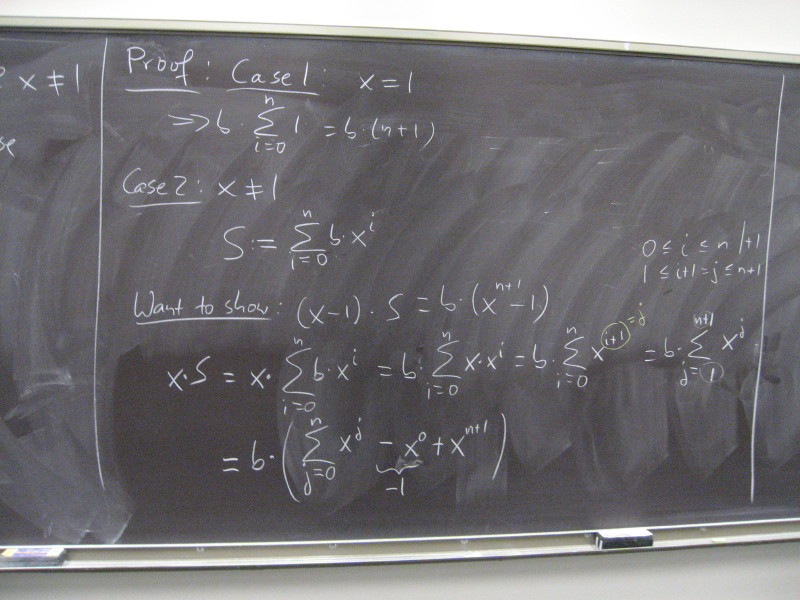 x ≠ 1
se
Proof: Case 1: x = 1
⇒> b · ∑_{i=0}^{n} 1 = b · (n+1)
Case 2: x ≠ 1
S := ∑_{i=0}^{n} b · x^i
0 ≤ i ≤ n |+1
1 ≤ i+1 = j ≤ n+1
Want to show: (x-1) · S = b · (x^{n+1} - 1)
x · S = x · ∑_{i=0}^{n} b · x^i = b · ∑_{i=0}^{n} x · x^i = b · ∑_{i=0}^{n} x^{i+1 = j} = b · ∑_{j=1}^{n+1} x^j
= b · ( ∑_{j=0}^{n} x^j - x^0 + x^{n+1} )
-1